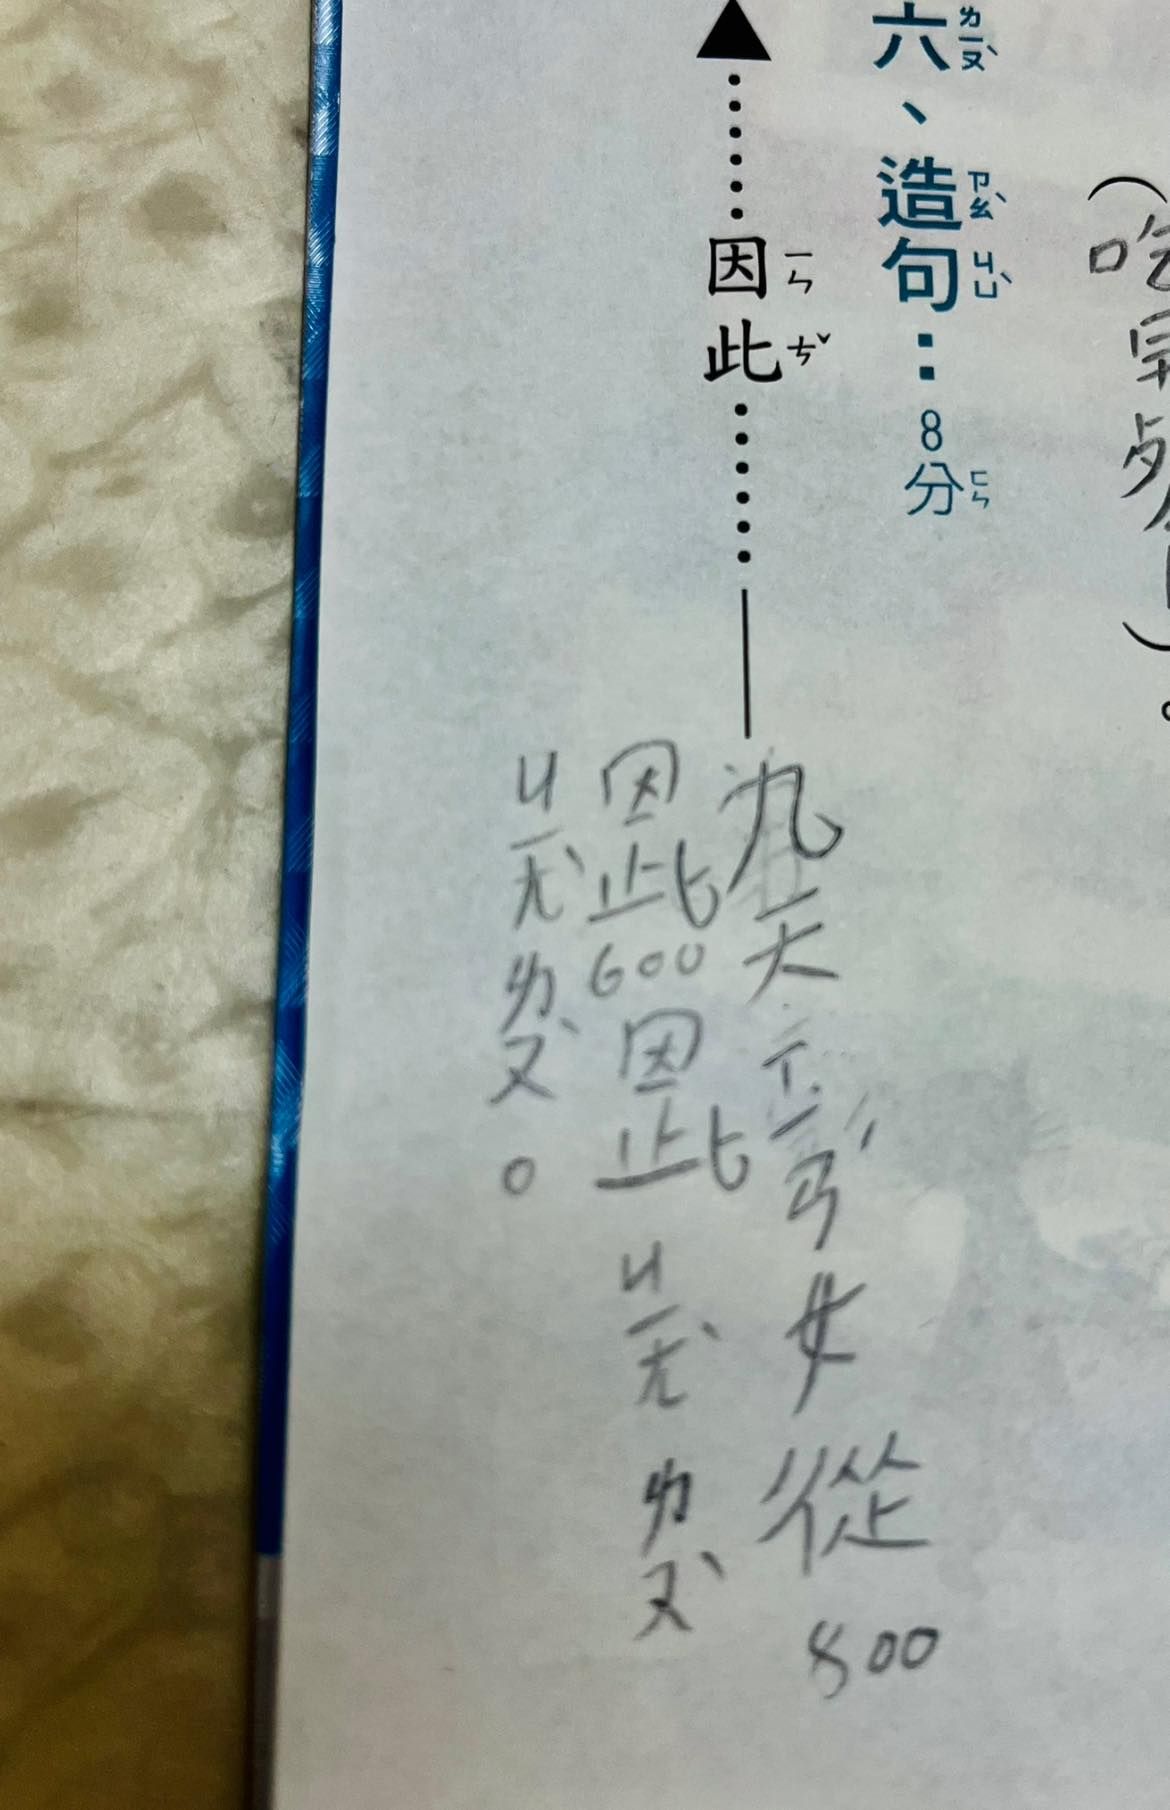 六ㄌㄧㄡˋ、造ㄗㄠˋ句ㄐㄩˋ：8分ㄈㄣ
▲……因ㄧㄣ此ㄘˇ……—九天ㄒㄧㄢˊ女從800
因此600因此ㄐㄧㄤˋㄌㄡˋ
ㄐㄧㄤˋㄌㄡˋ。